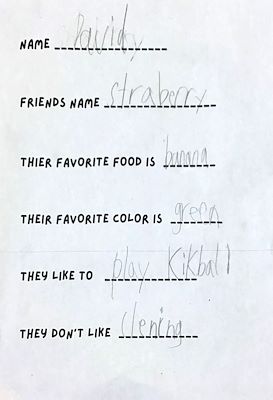 NAME Davidy
FRIENDS NAME straberry
THIER FAVORITE FOOD IS banana
THEIR FAVORITE COLOR IS green
THEY LIKE TO play Kikball
THEY DON'T LIKE clening